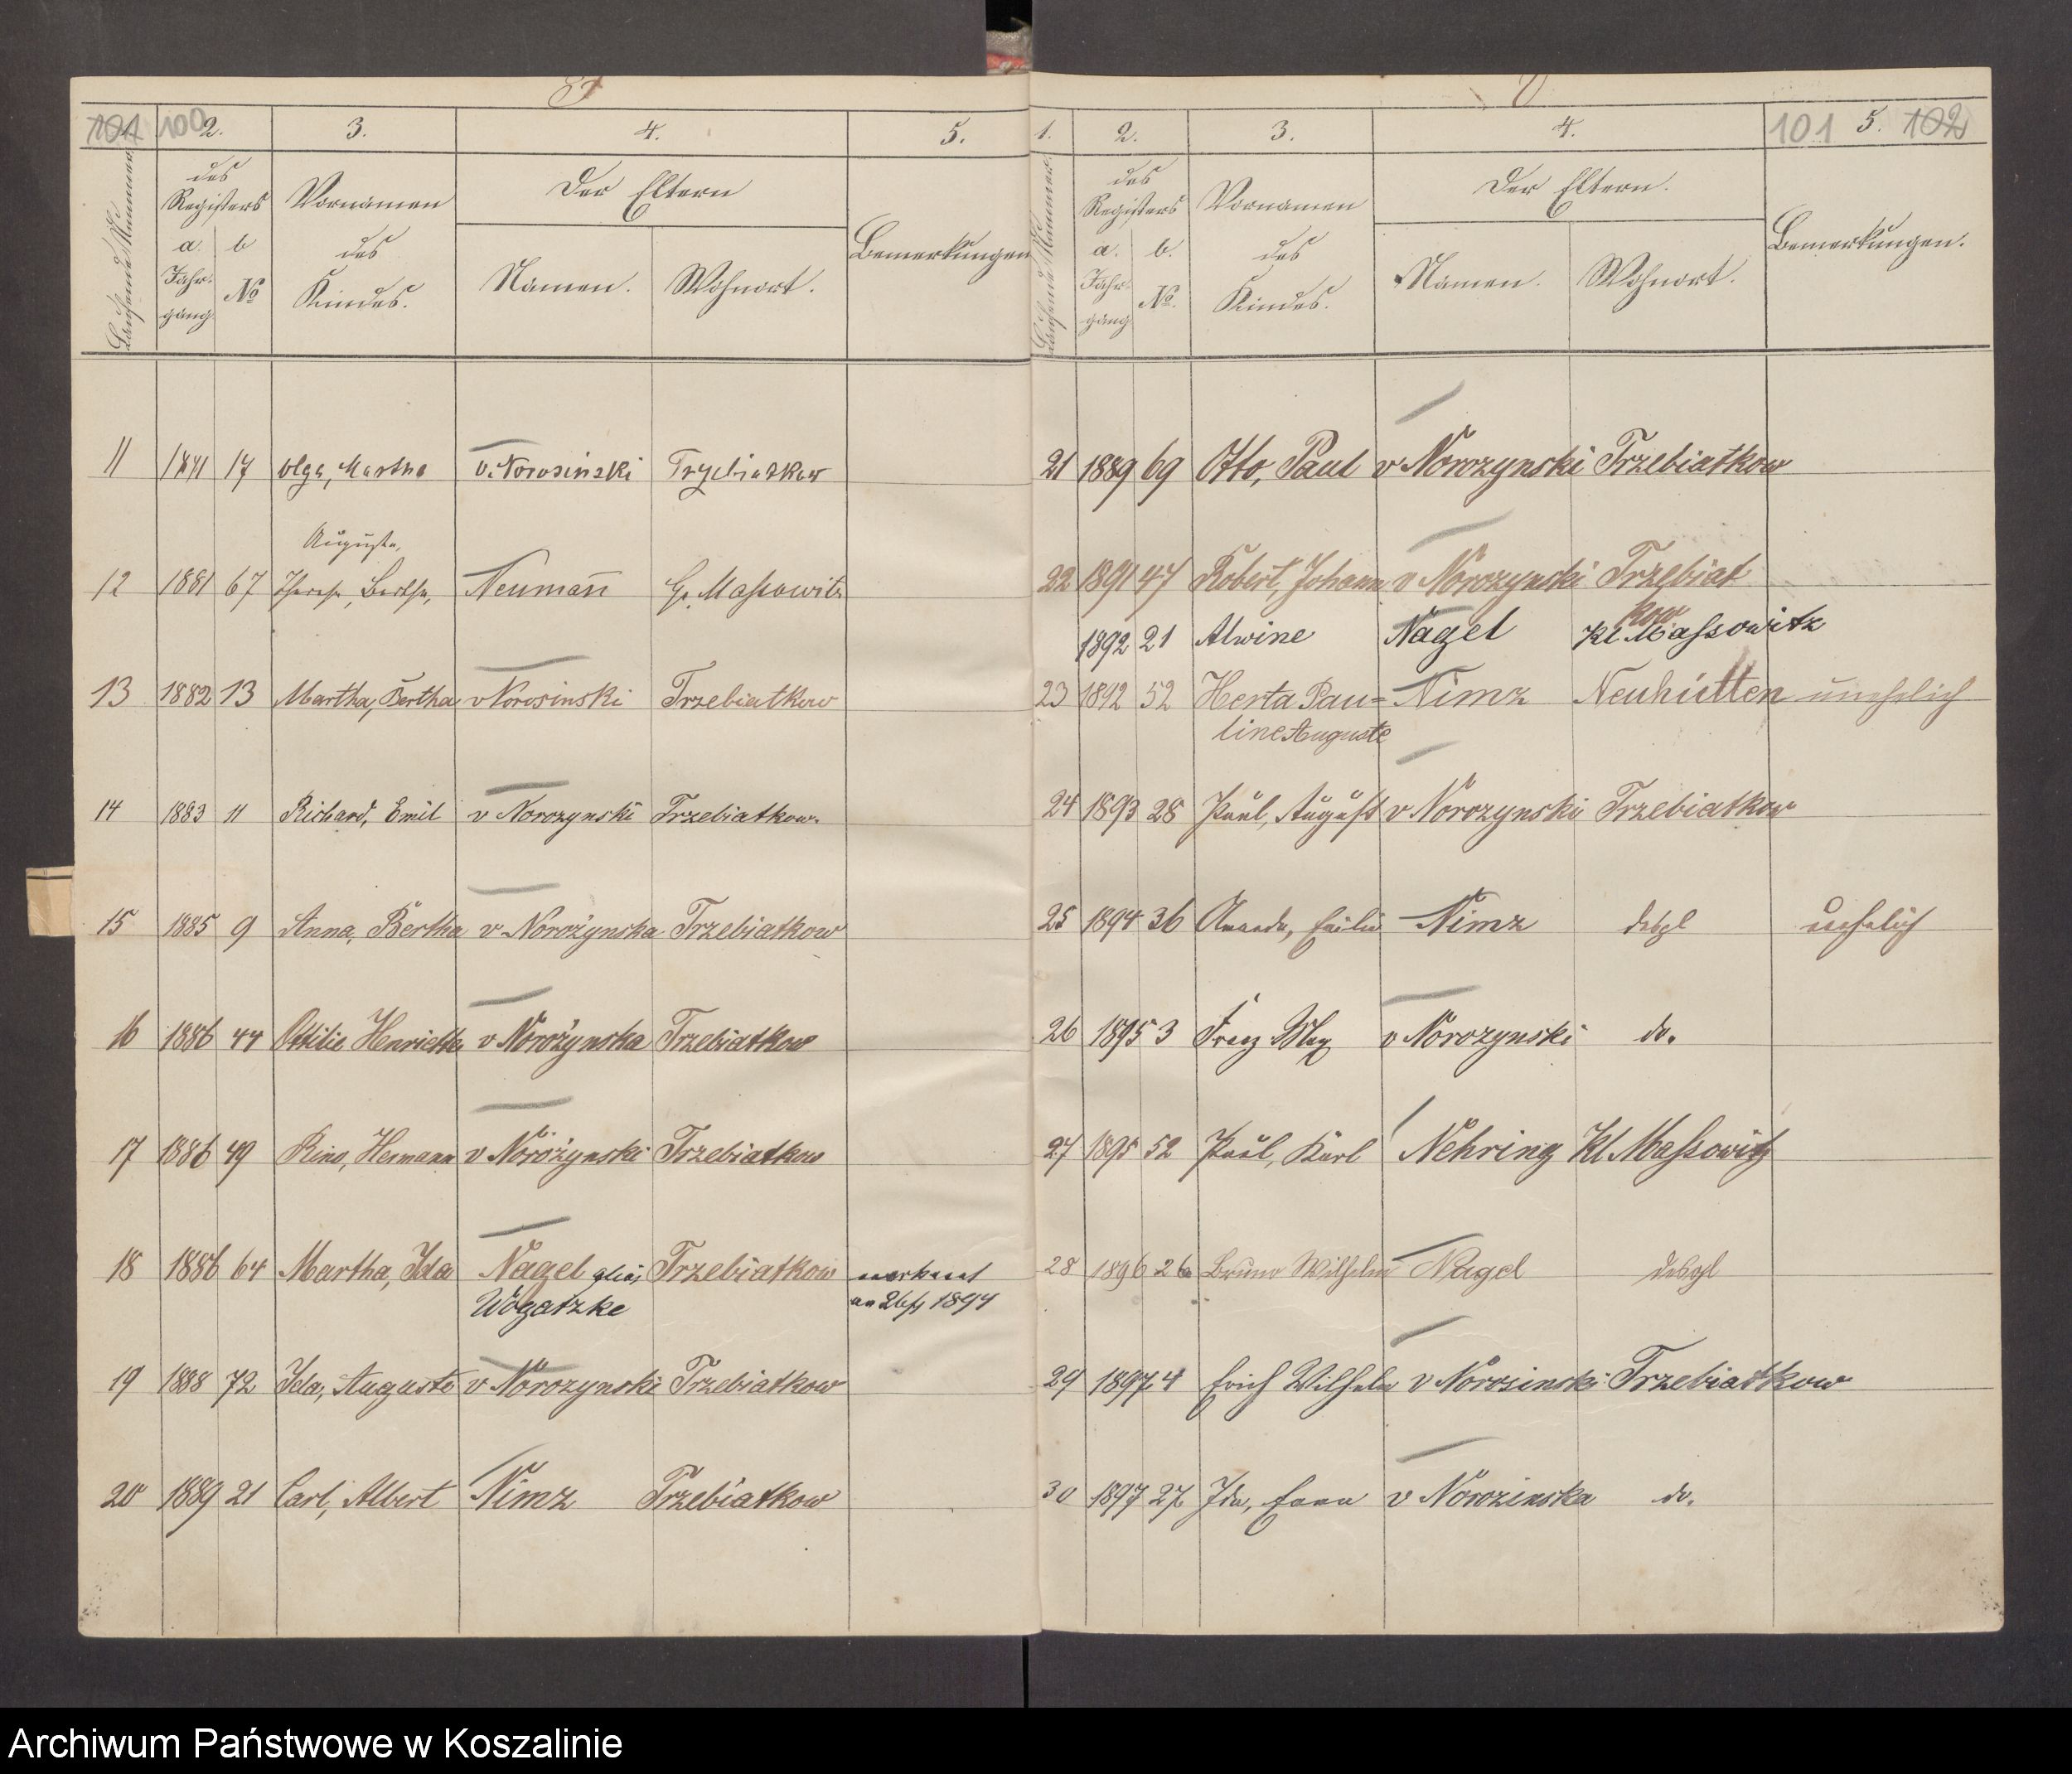 101 100 2. 3. 4. 5.
Laufende Nummer
des Registers
a. b
Jahrgang No
Vornamen des Kindes.
Der Eltern
Namen. Wohnort.
Bemerkungen
11 17 Olga, Martha v. Norosinski Trzebiatkow
Auguste,
12 1881 67 Therese, Bertha, Neumañ Gr. Maßowitz
13 1882 13 Martha, Bertha v Norosinski Trzebiatkow
14 1883 11 Richard, Emil v Norozynski Trzebiatkow.
15 1885 9 Anna, Bertha v Norożynska Trzebiatkow
16 1886 44 Ottilie Henriette v Norożynska Trzebiatkow
17 1886 49 Hermann v Norożynski Trzebiatkow
18 1886 64 Martha, Ida Nagel Trzebiatkow
Wogatzke 1894
19 1888 72 Ida, Auguste v Norozynski Trzebiatkow
20 1889 21 Carl, Albert Nimz Trzebiatkow
1. 2. 3. 4. 101 5. 102
Laufende Nummer.
des Registers
a. b.
Jahrgang No.
Vornamen des Kindes.
Der Eltern.
Namen. Wohnort.
Bemerkungen.
21 1889 69 Otto, Paul v Norozynski Trzebiatkow
22 1891 47 Robert, Johann v Norozynski Trzebiat
kow
1892 21 Alwine Nagel Kl. Maßowitz
23 1892 52 Herta Pau= Nimz Neuhütten unehelich
line Auguste
24 1893 28 Paul, August v Norozynski Trzebiatkow
25 1894 36 Amanda, Emilie Nimz desgl unehelich
26 1895 3 Franz Max v Norozynski do.
27 1895 52 Paul, Karl Nehring Kl Maßowitz
28 1896 26 Bruno Wilhelm Nagel desgl
29 1897 4 Erich Wilhelm v Norosinski Trzebiatkow
30 1897 27 Ida, Emma v Norozinska do.
Archiwum Państwowe w Koszalinie